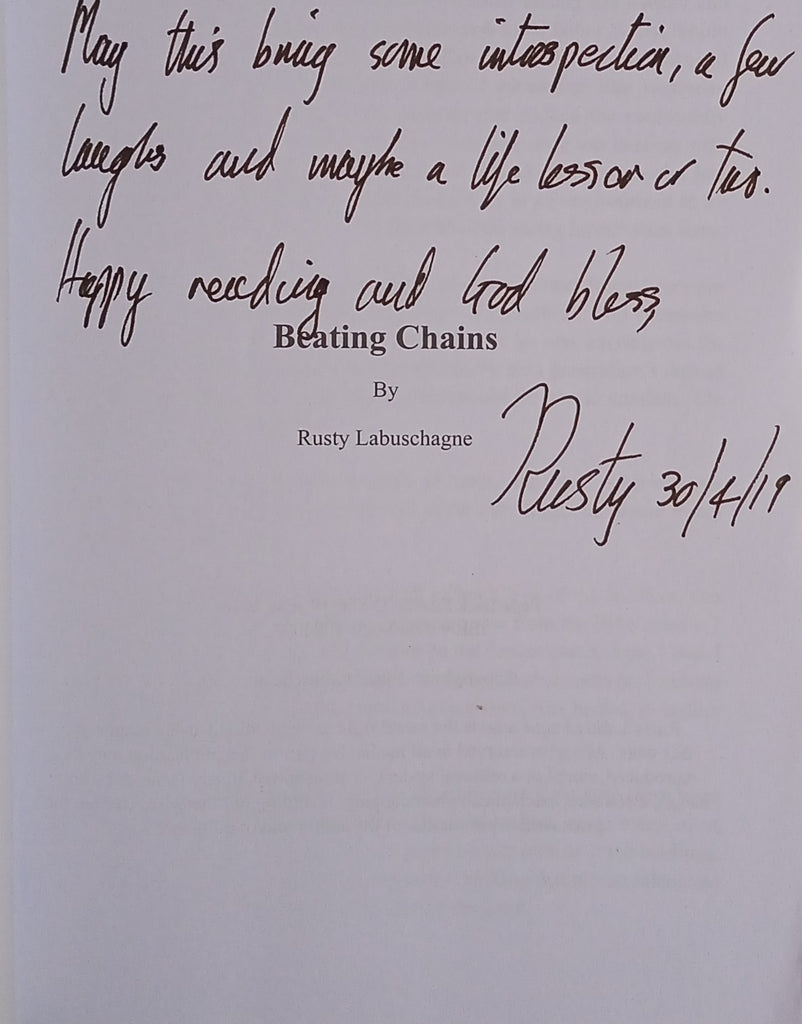 May this bring some introspection, a few
laughs and maybe a life lesson or two.
Happy reading and God bless,
Beating Chains
By
Rusty Labuschagne
Rusty 30/4/19